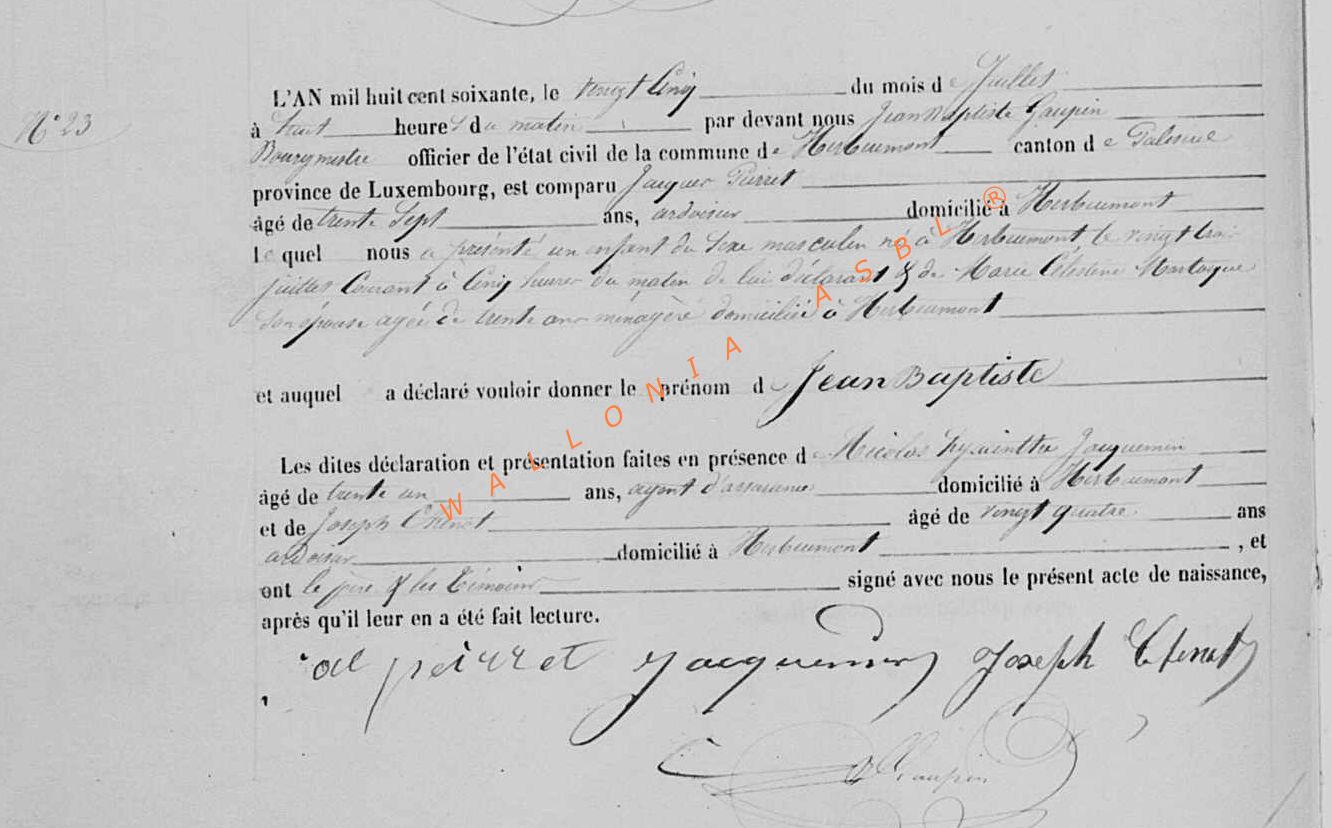 N° 23
L'AN mil huit cent soixante, le vingt Cinq du mois de Juillet
à huit heures du matin par devant nous Jean Baptiste Gaupin
Bourgmestre officier de l'état civil de la commune de Herbeumont canton de Paliseul
province de Luxembourg, est comparu Jacques Pierret
âgé de trente Sept ans, ardoisier domicilié à Herbeumont
lequel nous a présenté un enfant du Sexe masculin né à Herbeumont, le vingt trois
juillet Courant à Cinq heures du matin de lui déclarant & de Marie Célestine
Son épouse agée de trente ans ménagère domiciliée à Herbeumont
et auquel a déclaré vouloir donner le prénom de Jean Baptiste
Les dites déclaration et présentation faites en présence de Nicolas hyacinthe Jacquemin
âgé de trente un ans, agent d'assurances domicilié à Herbeumont
et de Joseph Chenot âgé de vingt quatre ans
ardoisier domicilié à Herbeumont, et
ont le père & les témoins signé avec nous le présent acte de naissance,
après qu'il leur en a été fait lecture.
peirret Jacquemin Joseph Chenot
Gaupin
WALLONIA ASBL ®